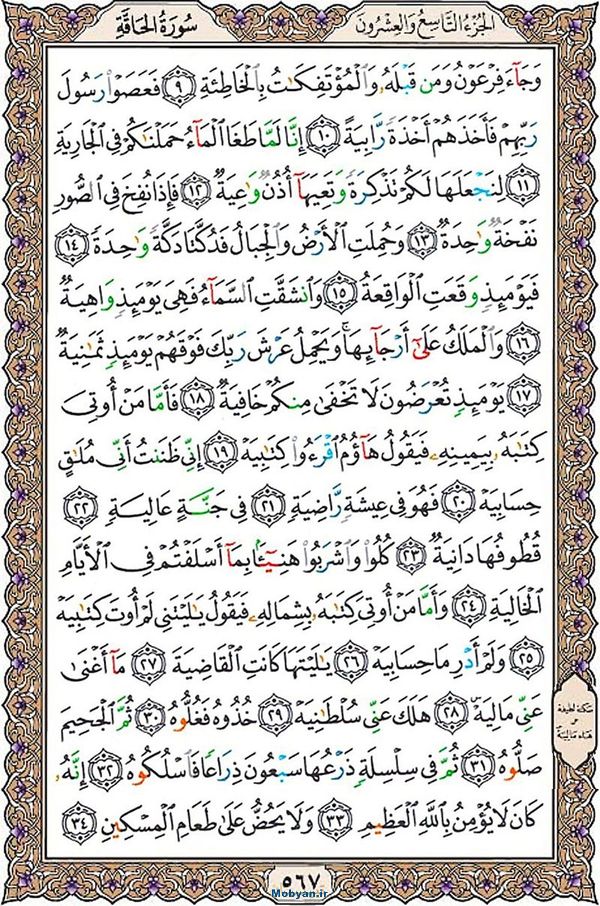 الجزء التاسع والعشرون
سورة الحاقة
وَجَآءَ فِرْعَوْنُ وَمَن قَبْلَهُۥ وَٱلْمُؤْتَفِكَٰتُ بِٱلْخَاطِئَةِ ٩ فَعَصَوْا۟ رَسُولَ
رَبِّهِمْ فَأَخَذَهُمْ أَخْذَةً رَّابِيَةً ١٠ إِنَّا لَمَّا طَغَا ٱلْمَآءُ حَمَلْنَٰكُمْ فِى ٱلْجَارِيَةِ
١١ لِنَجْعَلَهَا لَكُمْ تَذْكِرَةً وَتَعِيَهَآ أُذُنٌ وَٰعِيَةٌ ١٢ فَإِذَا نُفِخَ فِى ٱلصُّورِ
نَفْخَةٌ وَٰحِدَةٌ ١٣ وَحُمِلَتِ ٱلْأَرْضُ وَٱلْجِبَالُ فَدُكَّتَا دَكَّةً وَٰحِدَةً ١٤
فَيَوْمَئِذٍ وَقَعَتِ ٱلْوَاقِعَةُ ١٥ وَٱنشَقَّتِ ٱلسَّمَآءُ فَهِىَ يَوْمَئِذٍ وَاهِيَةٌ
١٦ وَٱلْمَلَكُ عَلَىٰٓ أَرْجَآئِهَا ۚ وَيَحْمِلُ عَرْشَ رَبِّكَ فَوْقَهُمْ يَوْمَئِذٍ ثَمَٰنِيَةٌ
١٧ يَوْمَئِذٍ تُعْرَضُونَ لَا تَخْفَىٰ مِنكُمْ خَافِيَةٌ ١٨ فَأَمَّا مَنْ أُوتِىَ
كِتَٰبَهُۥ بِيَمِينِهِۦ فَيَقُولُ هَآؤُمُ ٱقْرَءُوا۟ كِتَٰبِيَهْ ١٩ إِنِّى ظَنَنتُ أَنِّى مُلَٰقٍ
حِسَابِيَهْ ٢٠ فَهُوَ فِى عِيشَةٍ رَّاضِيَةٍ ٢١ فِى جَنَّةٍ عَالِيَةٍ ٢٢
قُطُوفُهَا دَانِيَةٌ ٢٣ كُلُوا۟ وَٱشْرَبُوا۟ هَنِيٓـًٔۢا بِمَآ أَسْلَفْتُمْ فِى ٱلْأَيَّامِ
ٱلْخَالِيَةِ ٢٤ وَأَمَّا مَنْ أُوتِىَ كِتَٰبَهُۥ بِشِمَالِهِۦ فَيَقُولُ يَٰلَيْتَنِى لَمْ أُوتَ كِتَٰبِيَهْ
٢٥ وَلَمْ أَدْرِ مَا حِسَابِيَهْ ٢٦ يَٰلَيْتَهَا كَانَتِ ٱلْقَاضِيَةَ ٢٧ مَآ أَغْنَىٰ
عَنِّى مَالِيَهْ ۜ ٢٨ هَلَكَ عَنِّى سُلْطَٰنِيَهْ ٢٩ خُذُوهُ فَغُلُّوهُ ٣٠ ثُمَّ ٱلْجَحِيمَ
صَلُّوهُ ٣١ ثُمَّ فِى سِلْسِلَةٍ ذَرْعُهَا سَبْعُونَ ذِرَاعًا فَٱسْلُكُوهُ ٣٢ إِنَّهُۥ
كَانَ لَا يُؤْمِنُ بِٱللَّهِ ٱلْعَظِيمِ ٣٣ وَلَا يَحُضُّ عَلَىٰ طَعَامِ ٱلْمِسْكِينِ ٣٤
سكتة لطيفة
هاء ماليه
٥٦٧
Mobyan.ir